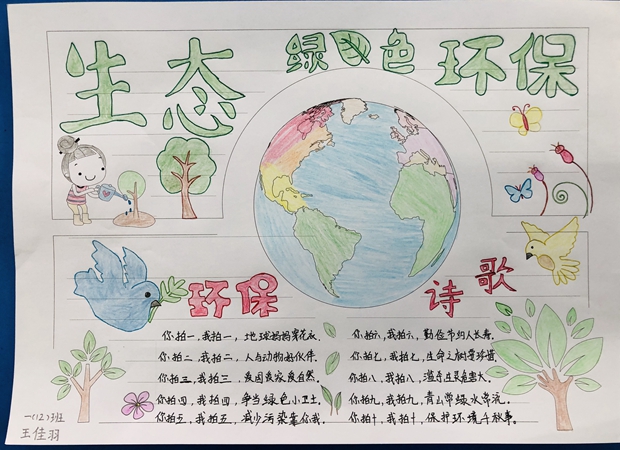 生态 绿色 环保
环保 诗歌
你拍一,我拍一,地球妈妈穿花衣.
你拍二,我拍二,人与动物好伙伴.
你拍三,我拍三,
你拍四,我拍四,争当绿色小卫士.
你拍五,我拍五,减少污染靠你我.
你拍六,我拍六,勤俭节约人长寿.
你拍七,我拍七,生命之树要珍惜.
你拍八,我拍八,
你拍九,我拍九,青山常绿水常流.
你拍十,我拍十,保护环境千秋事.
一(12)班
王佳羽